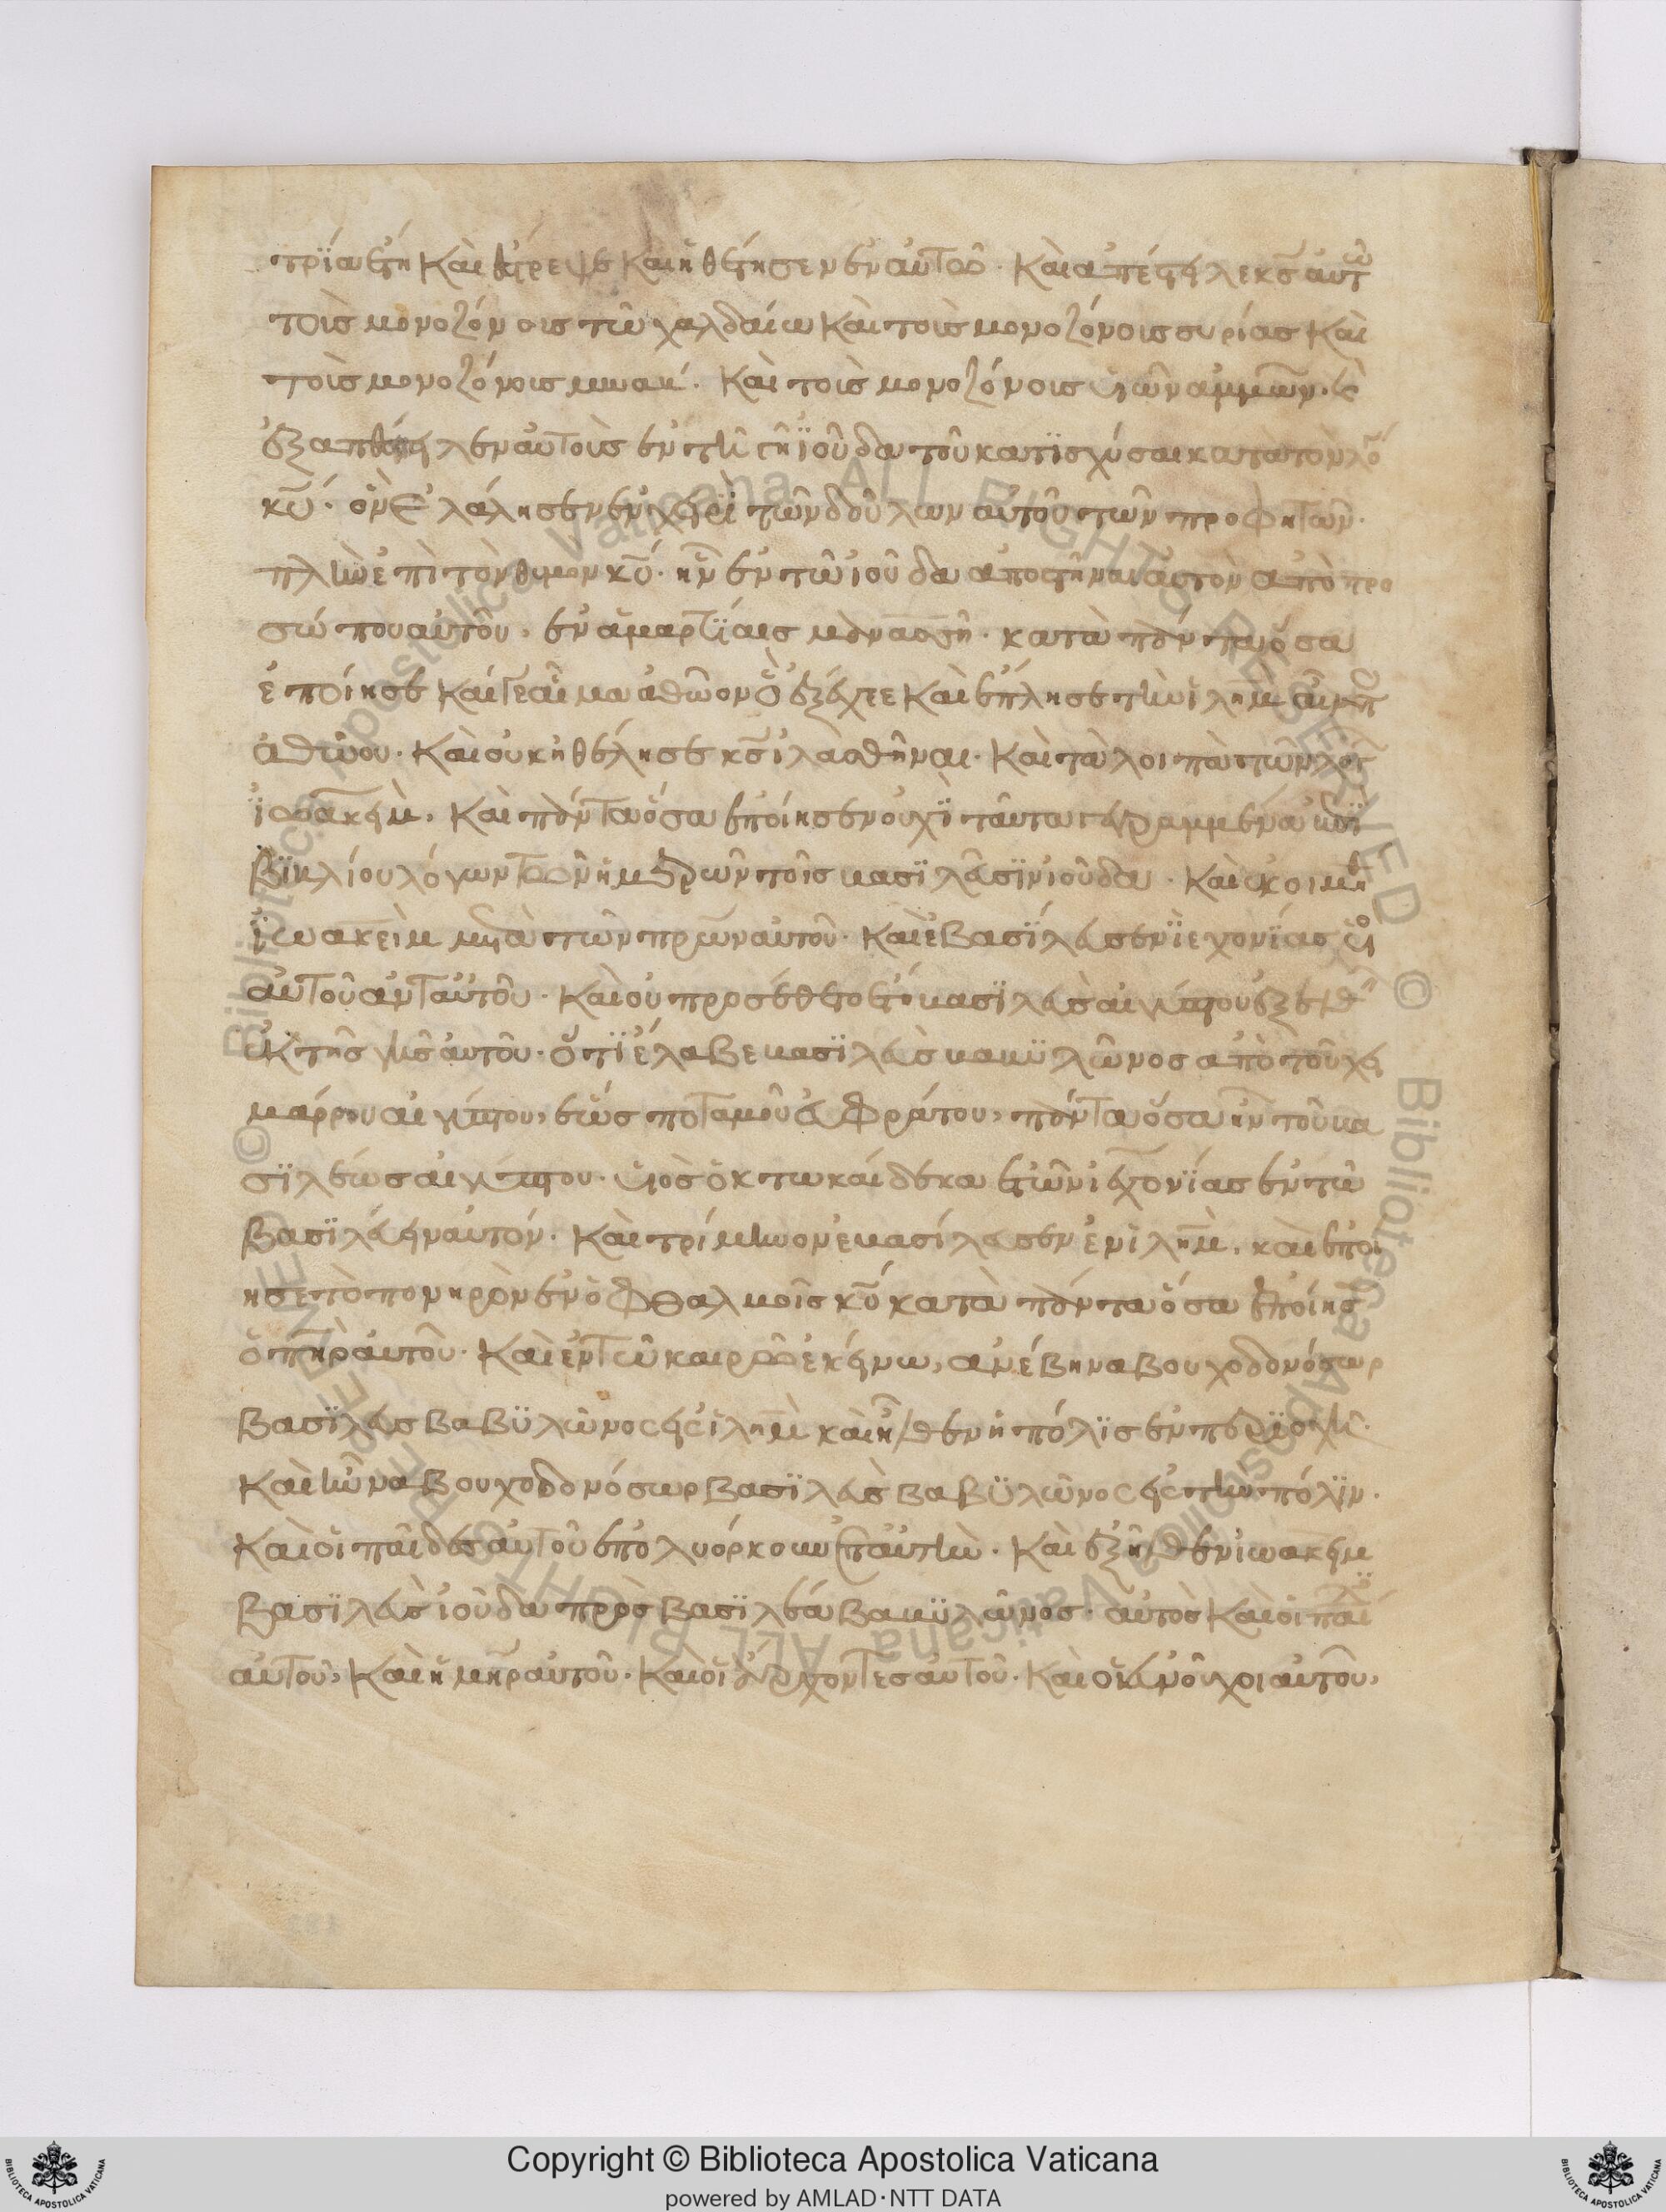 τρία ἔτη καὶ ἐπέστρεψε καὶ ἠθέτησεν ἐν αὐτῶ· καὶ ἀπέστειλε κς αὐτῶ
τοὺς μονοζώνους τῶ χαλδαίω καὶ τοῖς μονοζόνοις συρίας καὶ
τοῖς μονοζόνοις μωαβ· καὶ τοῖς μονοζόνοις υἱῶν ἀμμῶν· καὶ
ἐξαπέστειλεν αὐτοὺς ἐν τῆ γῆ ἰούδα τοῦ κατισχύσαι κατὰ τὸν λό
κυ· ὃν ἐλάλησεν ἐν χειρὶ τῶν δούλων αὐτοῦ τῶν προφητῶν·
πλὴν ἐπὶ τὸν θυμὸν κυ· ἦν ἐν τῶ ἰούδα ἀποστῆναι αὐτὸν ἀπὸ προ
σώπου αὐτοῦ, ἐν ἁμαρτίαις μανασσῆ· κατὰ πάντα ὅσα
ἐποίησε καί γε αἷμα ἀθῶον ὃ ἐξέχεε καὶ ἔπλησε τὴν ἰλημ αἵματ
ἀθώου· καὶ οὐκ ἠθέλησε κς ἱλασθῆναι· καὶ τὰ λοιπὰ τῶν λόγ
ἰωακεὶμ, καὶ πάντα ὅσα ἐποίησεν οὐχὶ ταῦτα γεγραμμένα ἐπὶ
βιβλίου λόγων τῶν ἡμερῶν τοῖς βασιλεῦσιν ἰούδα· καὶ ἐκοιμή
ἰωακεὶμ μετὰ τῶν πρων αὐτοῦ· καὶ ἐβασίλευσεν ἰεχονίας υἱὸ
αὐτοῦ ἀντ αὐτοῦ· καὶ οὐ προσέθετο ἔτι βασιλεὺς αἰγύπτου ἐξελθεῖ
ἐκ τῆς γῆς αὐτοῦ· ὅτι ἔλαβε βασιλεὺς βαβυλῶνος ἀπὸ τοῦ χει
μάρρου αἰγύπτου, ἕως ποταμοῦ εὐφράτου, πάντα ὅσα ἦν τοῦ βα
σιλέως αἰγύπτου· υἱὸς ὀκτωκαίδεκα ἐτῶν ἰεχονίας ἐν τῶ
βασιλεύειν αὐτόν· καὶ τρίμηνον ἐβασίλευσεν ἐν ἰλημ, καὶ ἐποί
ησε τὸ πονηρὸν ἐν ὀφθαλμοῖς κυ κατὰ πάντα ὅσα ἐποίησ
ὁ πηρ αὐτοῦ· καὶ ἐν τῶ καιρῶ ἐκείνω, ἀνέβη ναβουχοδονόσωρ
βασιλεὺς βαβυλῶνος εἰς ἰλημ καὶ ἦλθεν ἡ πόλις ἐν περιοχῆ·
καὶ ἦν ναβουχοδονόσωρ βασιλεὺς βαβυλῶνος εἰς τὴν πόλιν·
καὶ οἱ παῖδες αὐτοῦ ἐπολυόρκουν ἐπ αὐτὴν· καὶ ἐξῆλθεν ἰωακειμ
βασιλεὺς ἰούδα πρὸς βασιλέα βαβυλῶνος· αὐτὸς καὶ οἱ παῖ
αὐτοῦ, καὶ ἡ μηρ αὐτοῦ· καὶ οἱ ἄρχοντες αὐτοῦ· καὶ οἱ εὐνοῦχοι αὐτοῦ,
Copyright © Biblioteca Apostolica Vaticana
powered by AMLAD·NTT DATA